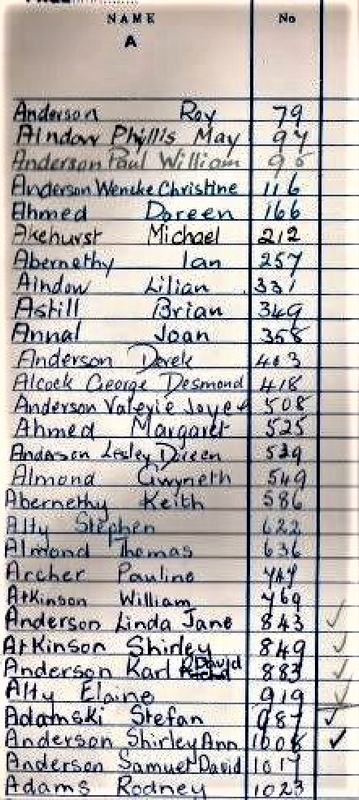 NAME No
A
Anderson Roy 79
Aindow Phyllis May 94
Anderson Paul William 95
Anderson Wencke Christine 116
Ahmed Doreen 166
Akehurst Michael 212
Abernethy Ian 257
Aindow Lilian 331
Astill Brian 349
Annal Joan 358
Anderson Derek 403
Alcock George Desmond 418
Anderson Valerie Joyce 508
Ahmed Margaret 525
Anderson Lesley Doreen 529
Almond Gwyneth 549
Abernethy Keith 586
Alty Stephen 622
Almond Thomas 636
Archer Pauline 747
Atkinson William 769
Anderson Linda Jane 843 ✓
Atkinson Shirley 849 ✓
Anderson Karl David 883 ✓
Alty Elaine 919 ✓
Adamski Stefan 987 ✓
Anderson Shirley Ann 1008 ✓
Anderson Samuel David 1017
Adams Rodney 1023